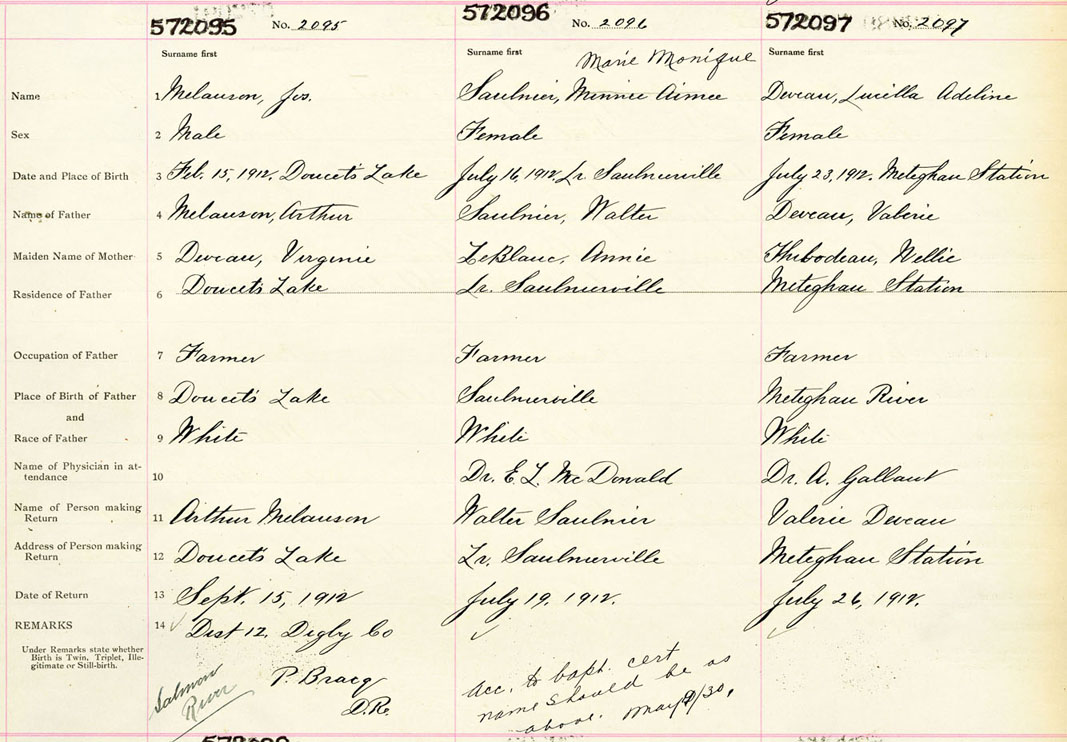 572095 No. 2095 572096 No. 2096 572097 No. 2097
Surname first Surname first Surname first
Marie Monique
Name 1 Melanson, Jos. Saulnier, Minnie Aimee Deveau, Lucilla Adeline
Sex 2 Male Female Female
Date and Place of Birth 3 Feb. 15, 1912. Doucet's Lake July 16, 1912, Lr Saulnierville July 23, 1912. Meteghan Station
Name of Father 4 Melanson, Arthur Saulnier, Walter Deveau, Valerie
Maiden Name of Mother 5 Deveau, Virginie LeBlanc, Annie Thibodeau, Nellie
Residence of Father 6 Doucet's Lake Lr. Saulnierville Meteghan Station
Occupation of Father 7 Farmer Farmer Farmer
Place of Birth of Father 8 Doucet's Lake Saulnierville Meteghan River
and
Race of Father 9 White White White
Name of Physician in at-
tendance 10 Dr. E. L. McDonald Dr. A. Gallant
Name of Person making
Return 11 Arthur Melanson Walter Saulnier Valerie Deveau
Address of Person making
Return 12 Doucet's Lake Lr. Saulnierville Meteghan Station
Date of Return 13 Sept. 15, 1912 July 19. 1912. July 26, 1912.
REMARKS 14 Dist 12. Digby Co
Under Remarks state whether
Birth is Twin, Triplet, Ille-
gitimate or Still-birth.
Salmon
River
P. Bracq
D.R.
Acc. to bapt. cert
name should be as
above. May /30,